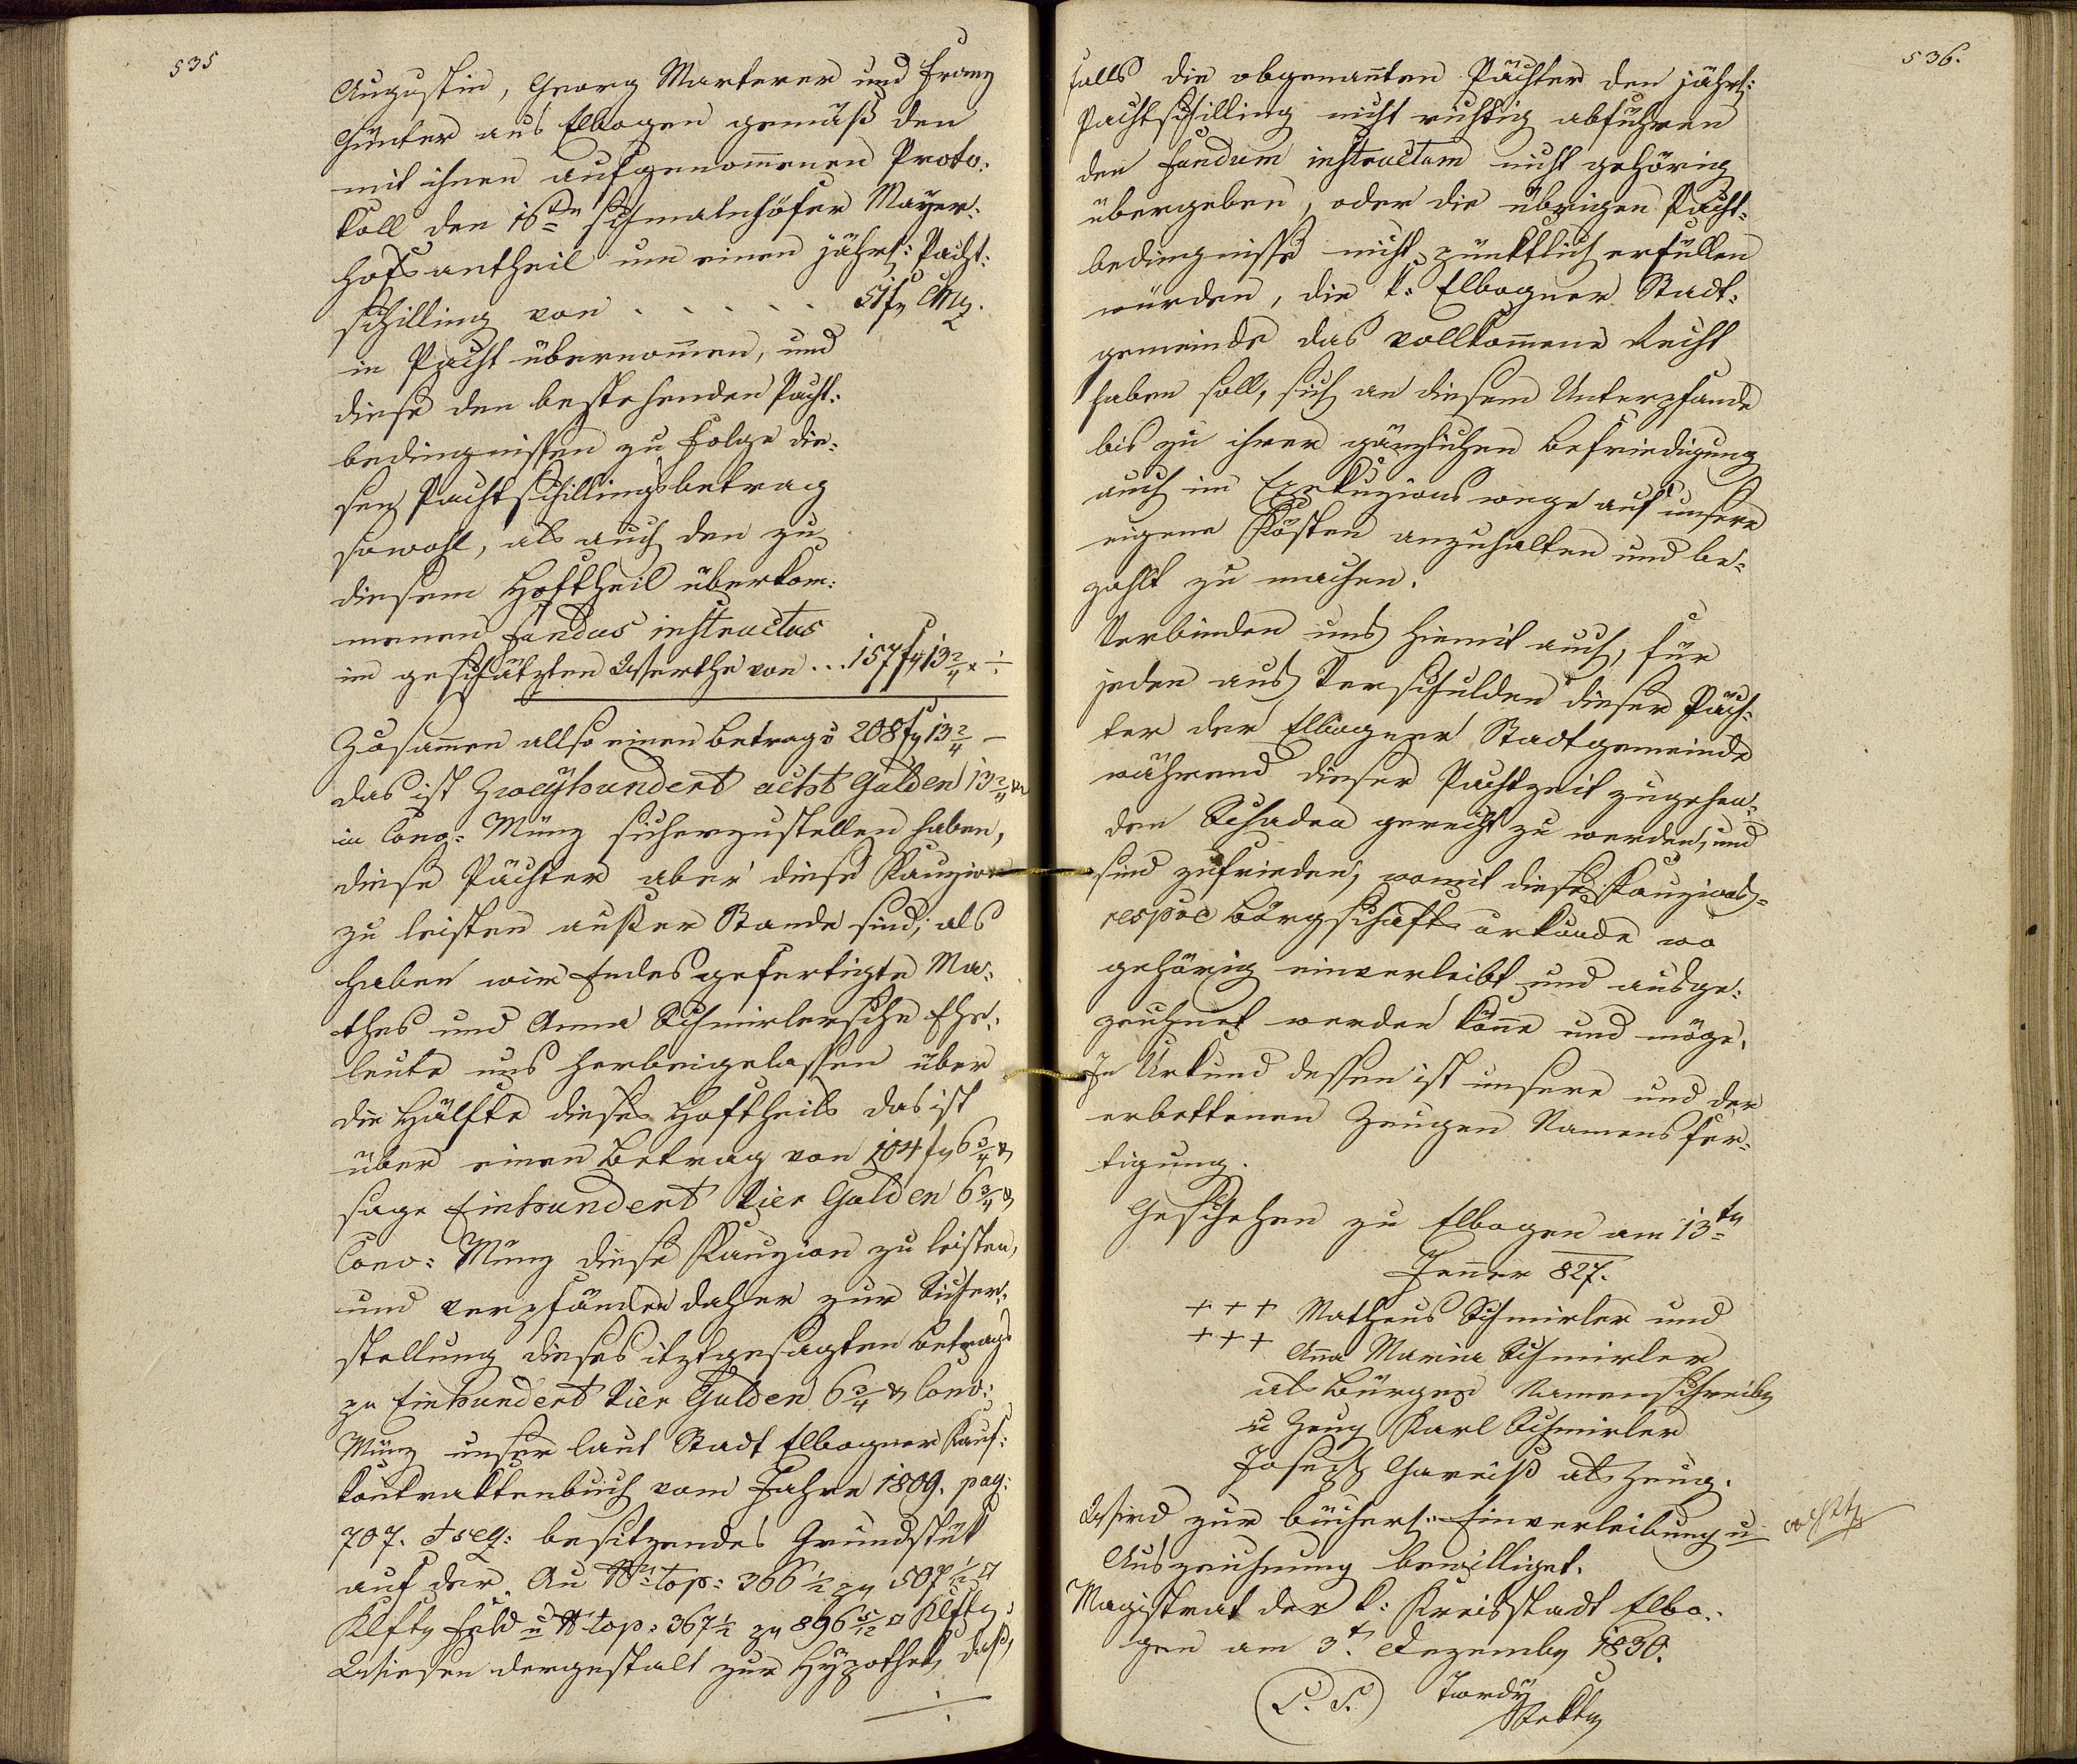 535
Augustin, Georg Marterer und Franz
Günter aus Elbogen gemäß den
mit ihnen aufgenom̅enen Proto:
koll den 16ten Schmalnhöfer Mayer:
hofsantheil um einen jährl: Pacht:
schilling von . . . . . 51 f CMz.
in Pacht übernom̅en, und
diese den bestehenden Pacht:
bedingnissen zu Folge die:
sen Pachtschillingsbetrag
sowohl, als auch den zu
diesem Hoftheil überkom:
menen Fundus instructus
im geschätzten Werthe von . . . 157 f 13 2/4 x
Zusam̅en allso einen Betrag v 208 f 13 2/4 —
das ist Zweyhundert acht Gulden 13 2/4 x
in Conv: Münz sicherzustellen haben,
diese Pächter aber diese Kauzion
zu leisten außer Stande sind; als
haben wir Endesgefertigte Ma:
thes und Anna Schmirlersche Ehe:
leute uns herbeigelassen über
die Hälfte dieses Hoftheils das ist
über einen Betrag von 104 f 6 3/4 x
sage Einhundert Vier Gulden 6 3/4 x
Conv: Münz diese Kauzion zu leisten,
und verpfänden daher zur Sicher:
stellung dieses itztgesagten Betrags
zu Einhundert Vier Gulden 6 3/4 x Conv:
Münz unser laut Stadt Elbogner Kauf:
kontraktenbuch vom Jahre 1809. pag:
707. et seq: besitzendes Grundstük
auf der Au No top: 366 1/2 zu 507 1/12 □
Klftr Feld u No top: 367 1/2 zu 896 5/12 □ Klftr
Wiesen dergestalt zur Hypothek, daß,
536.
falls die obgenan̅ten Pächter den jährl:
Pachtschilling nicht richtig abführen
den Fundum instructum nicht gehörig
übergeben, oder die übrigen Pacht:
bedingnisse nicht pünktlich erfüllen
würden, die k: Elbogner Stadt:
gemeinde das vollkom̅ene Recht
haben soll, sich an diesem Unterpfande
bis zu ihrer gänzlichen Befriedigung
auch im Exekuzionswege auf unsere
eigene Kösten anzuhalten und be:
zahlt zu machen.
Verbinden uns hiemit auch, für
jeden aus Verschulden dieser Päch:
ter der Elbogner Stadtgemeinde
während dieser Pachtzeit zugehen:
den Schaden gerecht zu werden, und
sind zufrieden, womit diese Kauzions:
respve Bürgschaftsurkunde wo
gehörig einverleibt und ausge:
zeichnet werden kön̅e und möge.
In Urkund dessen ist unsere und der
erbettenen Zeugen Namensfer:
tigung.
Geschehen zu Elbogen am 13tn
Jen̅er 827.
+++ Matheus Schmirler und
+++ An̅a Maria Schmirler
als Bürgen Namenschreiber
u Zeug Karl Schmirler
Joseph Gareiß als Zeug.
Wird zur bücherl: Einverleibung u
Auszeichnung bewilliget.
Magistrat der k: Kreisstadt Elbo:
gen am 3t Dezember 1830.
L. S. Tordy